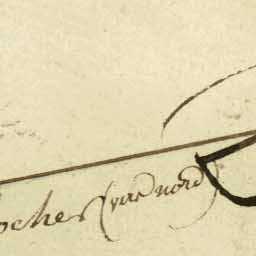 oches (vue nord)